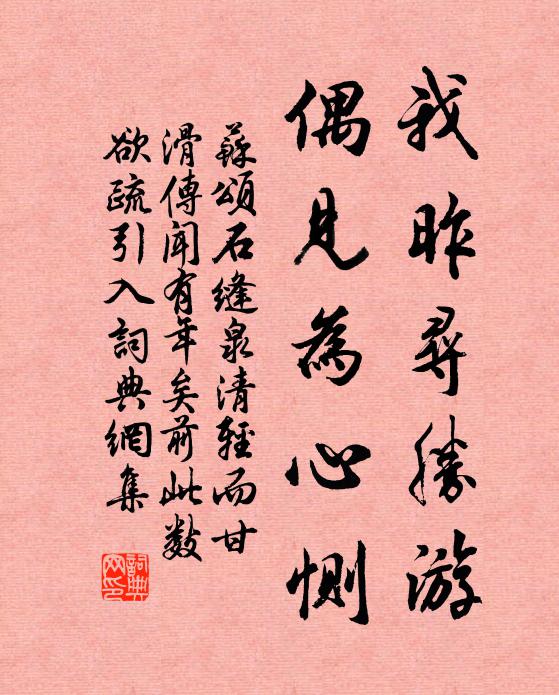 我昨尋勝游
偶見為心惻
蘇頌石縫泉清輕而甘
滑傳聞有年矣前此數
欲疏引入詞典網集
詞典
网印